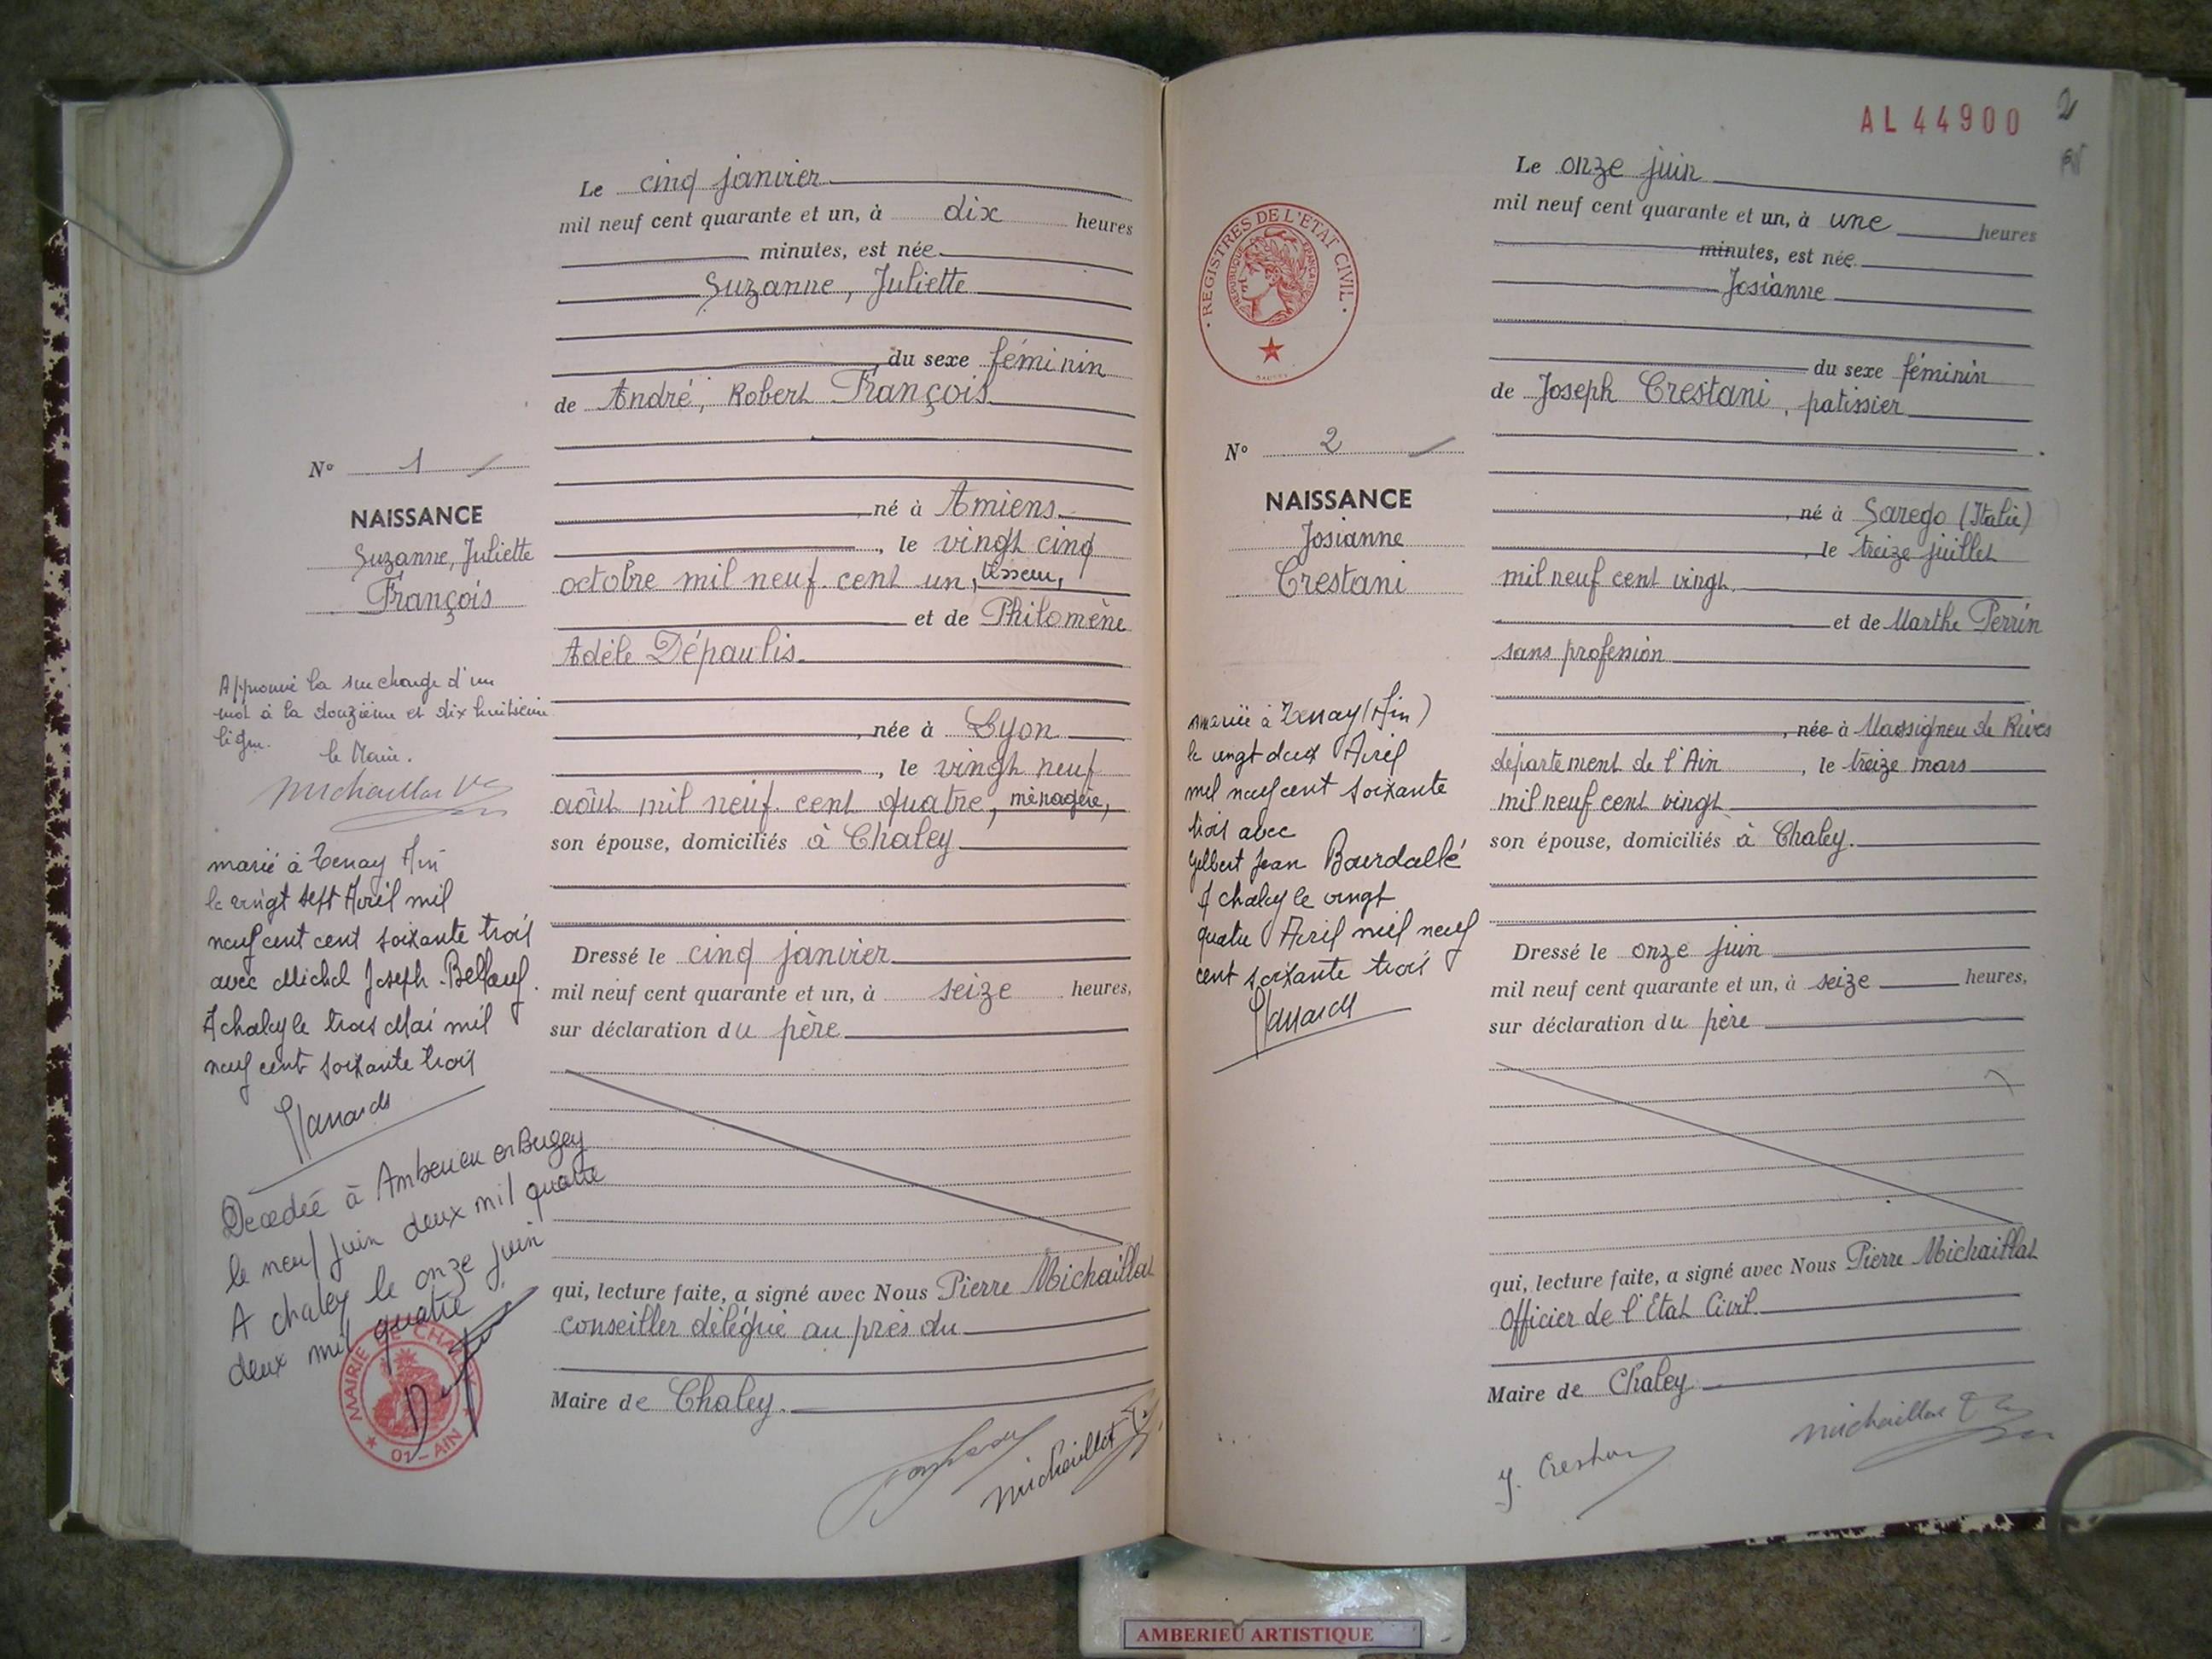 Le cinq janvier
mil neuf cent quarante et un, à dix heures
minutes, est née
Suzanne, Juliette
du sexe féminin
de André, Robert François
né à Amiens
, le vingt cinq
octobre mil neuf cent un, tisseur,
et de Philomène
Adèle Dépaulis
, née à Lyon
, le vingt neuf
août mil neuf cent quatre, ménagère,
son épouse, domiciliés à Chaley
Dressé le cinq janvier
mil neuf cent quarante et un, à seize heures,
sur déclaration du père
qui, lecture faite, a signé avec Nous Pierre Michaillat
conseiller délégué au près du
Maire de Chaley.
Michaillat
N° 1
NAISSANCE
Suzanne, Juliette
François
Approuvé la surcharge d'un
mot à la douzième et dix huitième
ligne.
le Maire.
Michaillat
marié à Tenay Ain
le vingt sept Avril mil
neuf cent cent soixante trois
avec Michel Joseph
A chaley le trois Mai mil
neuf cent soixante trois
Décédée à Ambérieu en Bugey
le neuf juin deux mil quatre
A chaley le onze juin
deux mil quatre
MAIRIE DE CHALEY
01-AIN
AL 44900
2
REGISTRES DE L'ETAT CIVIL
REPUBLIQUE FRANÇAISE
Le onze juin
mil neuf cent quarante et un, à une heures
minutes, est née
Josianne
du sexe féminin
de Joseph Crestani, patissier
, né à Sarego (Italie)
, le treize juillet
mil neuf cent vingt
et de Marthe Perrin
sans profession
, née à Massigneu de Rives
département de l'Ain, le treize mars
mil neuf cent vingt
son épouse, domiciliés à Chaley.
Dressé le onze juin
mil neuf cent quarante et un, à seize heures,
sur déclaration du père
qui, lecture faite, a signé avec Nous Pierre Michaillat
Officier de l'Etat Civil.
Maire de Chaley
J. Crestani
Michaillat
N° 2
NAISSANCE
Josianne
Crestani
mariée à Tenay (Ain)
le vingt deux Avril
mil neuf cent soixante
trois avec
Gilbert Jean Bourdallé
A chaley le vingt
quatre Avril mil neuf
cent soixante trois
AMBERIEU ARTISTIQUE